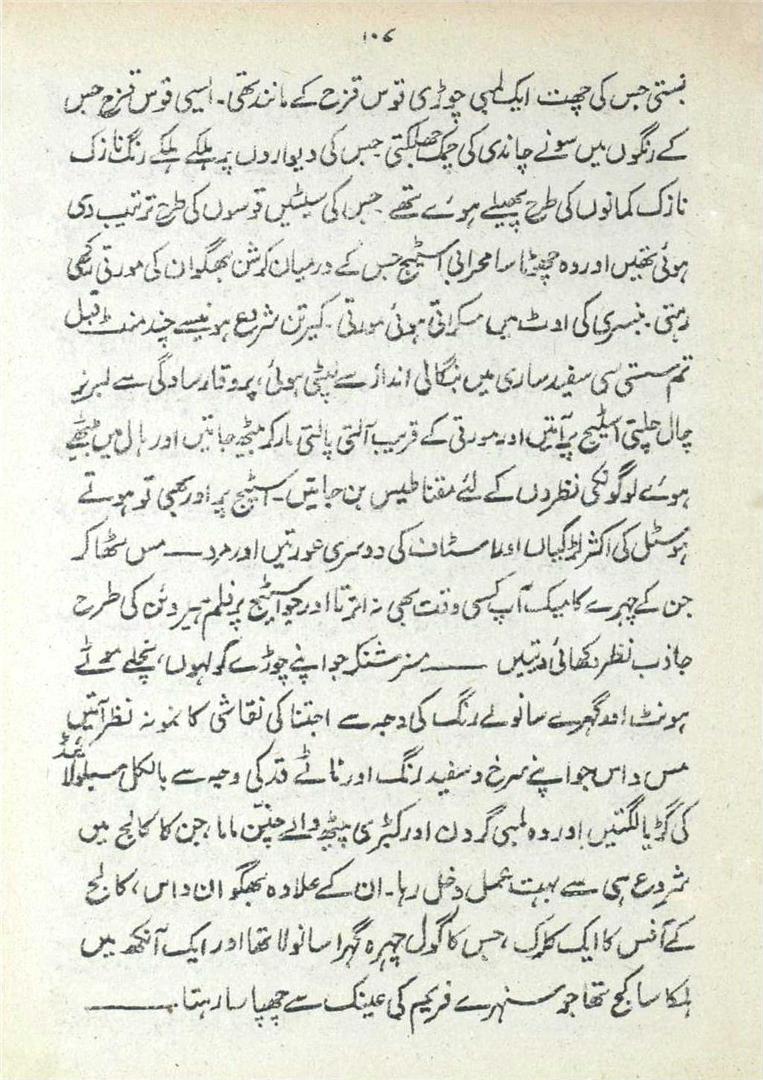 ۱۰۶
بستی جس کی چھت ایک لمبی چوڑی قوس قزح کے مانند تھی۔ ایسی قوس قزح جس
کے رنگوں میں سونے چاندی کی چمک جھلکتی جس کی دیواروں پر ہلکے ہلکے رنگ نازک
نازک کمانوں کی طرح پھیلے ہوئے تھے جس کی سیٹیں قوسوں کی طرح ترتیب دی
ہوئی تھیں اور وہ چھوٹا سا محرابی اسٹیج جس کے درمیان کرشن بھگوان کی مورتی رکھی
رہتی۔ بنسری کی اوٹ میں مسکراتی ہوئی مورتی۔ کیرتن شروع ہونیسے چند منٹ قبل
تم سستی سی سفید ساری میں بنگالی انداز سے لپٹی ہوئی، پروقار سادگی سے لبریز
چال چلتی اسٹیج پر آتیں اور مورتی کے قریب آلتی پالتی مار کر بیٹھ جاتیں اور ہال میں بیٹھے
ہوئے لوگونکی نظروں کے لئے مقناطیس بن جاتیں۔ اسٹیج پر اور بھی تو ہوتے
ہوسٹل کی اکثر لڑکیاں اور اسٹاف کی دوسری عورتیں اور مرد ــــ مس ٹھاکر
جن کے چہرے کا میک آپ کسی وقت بھی نہ اترتا اور جو اسٹیج پر فلم ہیروئن کی طرح
جاذب نظر دکھائی دیتیں ــــــ مسز شنکر جو اپنے چوڑے کولہوں، نچلے موٹے
ہونٹ اور گہرے سانولے رنگ کی وجہ سے اجنتا کی نقاشی کا نمونہ نظر آتیں
مس داس جو اپنے سرخ و سفید رنگ اور ناٹے قد کی وجہ سے بالکل سیلولائڈ
کی گڑیا لگتیں اور وہ لمبی گردن اور کبڑی پیٹھ والے جتن ماما، جن کا کالج میں
شروع ہی سے بہت عمل دخل رہا۔ ان کے علاوہ بھگوان داس، کالج
کے آفس کا ایک کلرک، جس کا گول چہرہ گہرا سانولا تھا اور ایک آنکھ میں
ہلکا سا کج تھا جو سنہرے فریم کی عینک سے چھپا سا رہتا ــــــــ